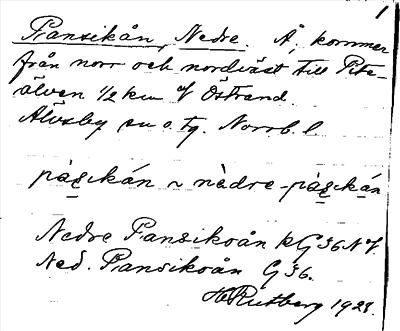 1
Pansikån, Nedre. Å, kommer
från norr och nordväst till Pite-
älven 1/2 km V Östrand.
Älvsby sn o. tg. Norrb. l.
pàsikán ~ nèdre-pàsikán
Nedre Pansikoån kG 36 NV.
Ned. Pansikoån G 36.
H Rutberg 1928.